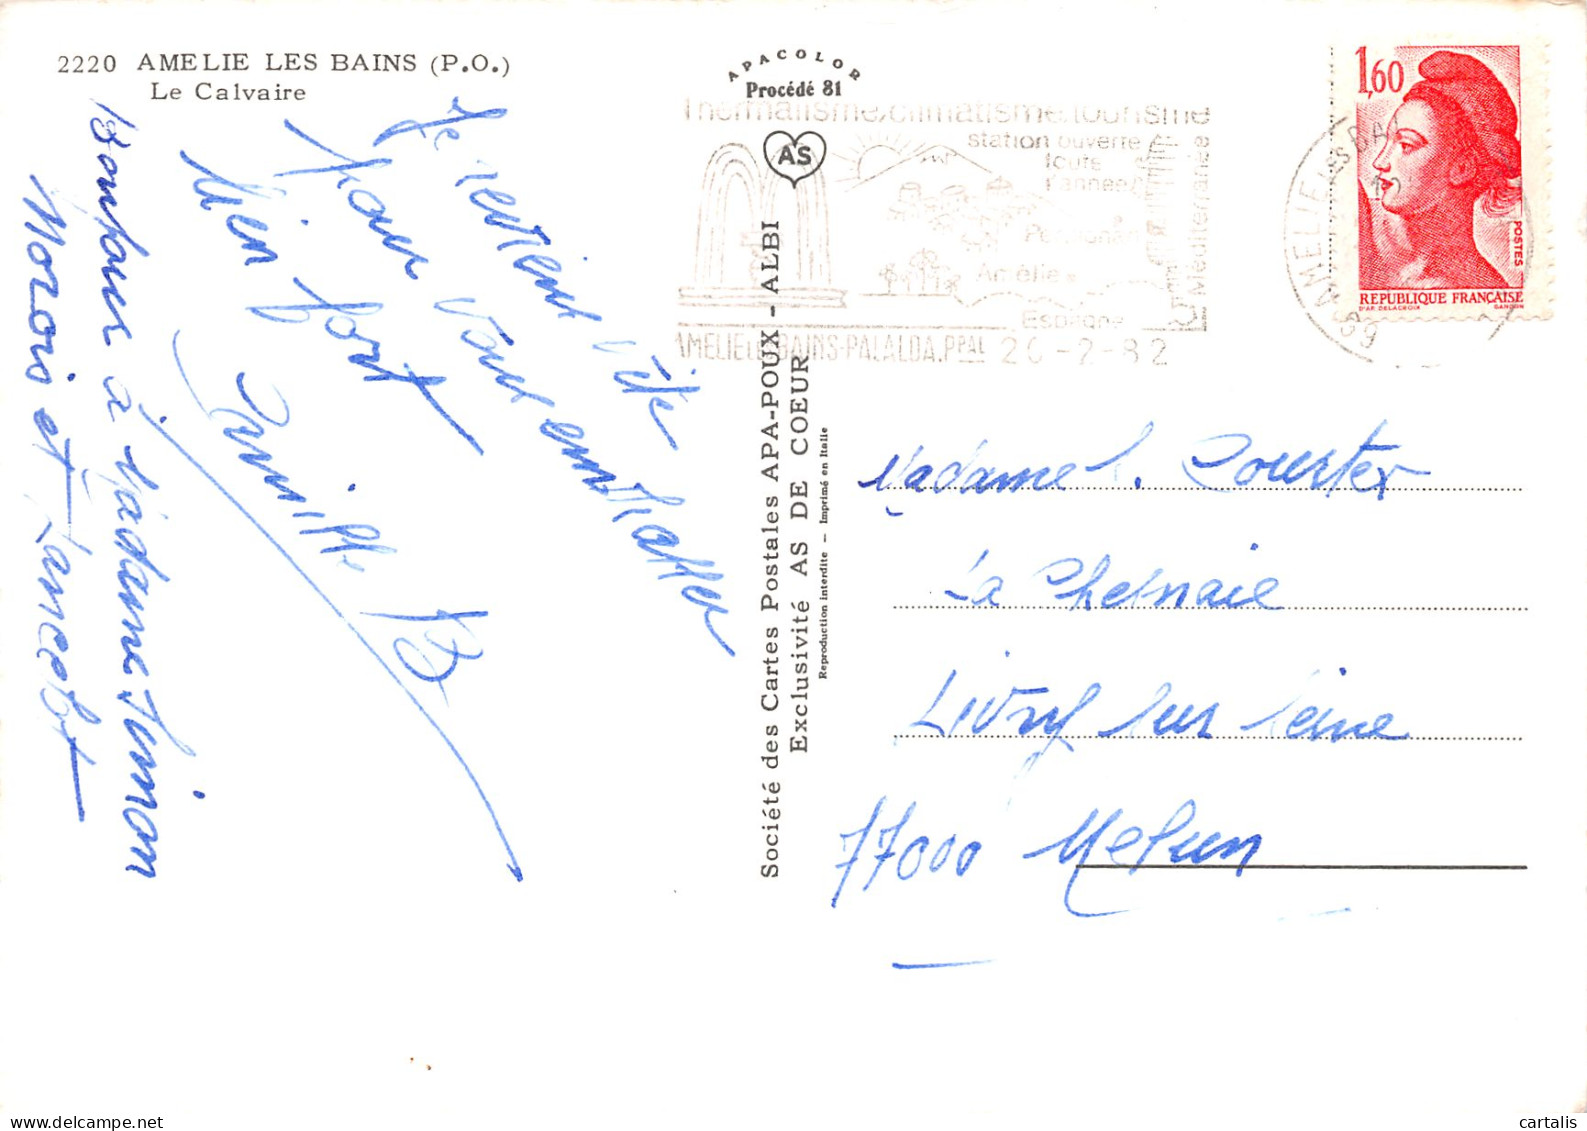 2220 AMELIE LES BAINS (P.O.)
Le Calvaire
APACOLOR
Procédé 81
AS
Thermalisme, climatisme, tourisme
station ouverte
toute
l'année
Perpignan
Amélie
Espagne
Méditerranée
AMELIE LES BAINS-PALALDA.PPAL 26-2-82
AMELIE LES BA
66
1,60
POSTES
REPUBLIQUE FRANÇAISE
D'AP. DELACROIX GANDON
Je reviens l'été
pour vous embrasser
bien fort
Bonjour à Madame Simon
Morois et Lancelot
Société des Cartes Postales APA-POUX - ALBI
Exclusivité AS DE COEUR
Reproduction interdite - Imprimé en Italie
Madame
La Chesnaie
Livry sur Seine
77000 Melun
cartalis